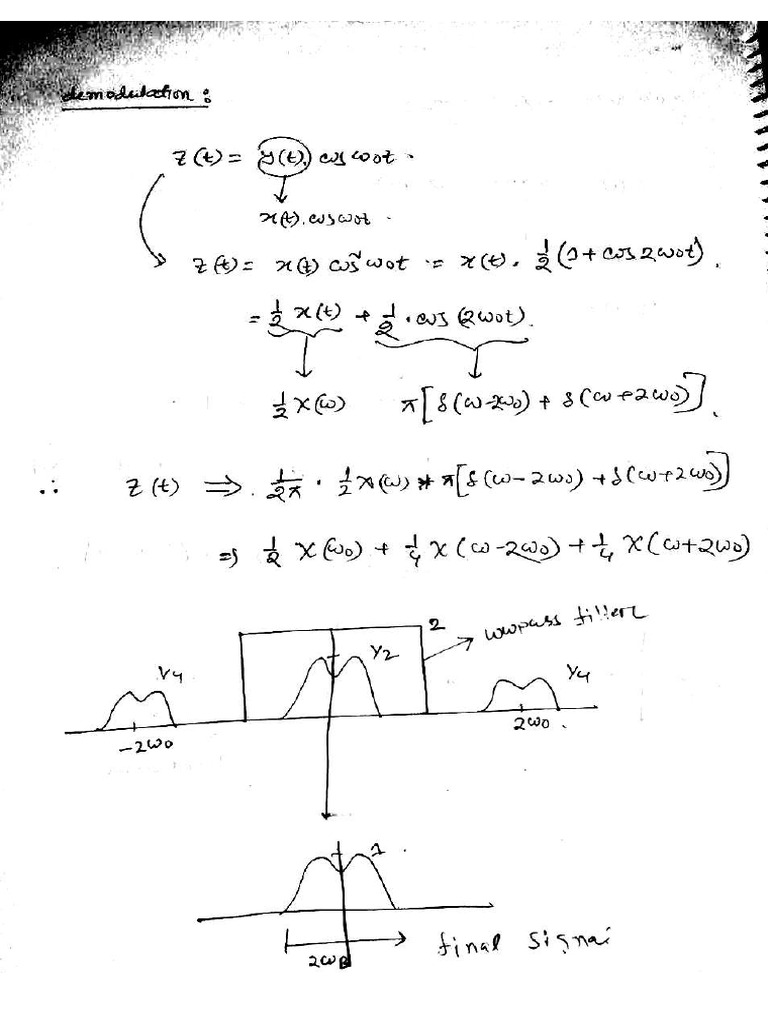 demodulation:
z(t) = y(t). cos ω0t.
x(t). cosω0t.
z(t) = x(t) cos²ω0t = x(t). 1/2 (1 + cos 2ω0t).
= 1/2 x(t) + 1/2 . cos (2ω0t).
1/2 X(ω) π[δ(ω-2ω0) + δ(ω+2ω0)].
∴ z(t) ⇒ 1/2π . 1/2 X(ω) * π[δ(ω-2ω0) + δ(ω+2ω0)]
⇒ 1/2 X(ω0) + 1/4 X(ω-2ω0) + 1/4 X(ω+2ω0)
2 lowpass filter
1/4 1/2 1/4
-2ω0 2ω0.
1.
2ωB final signal